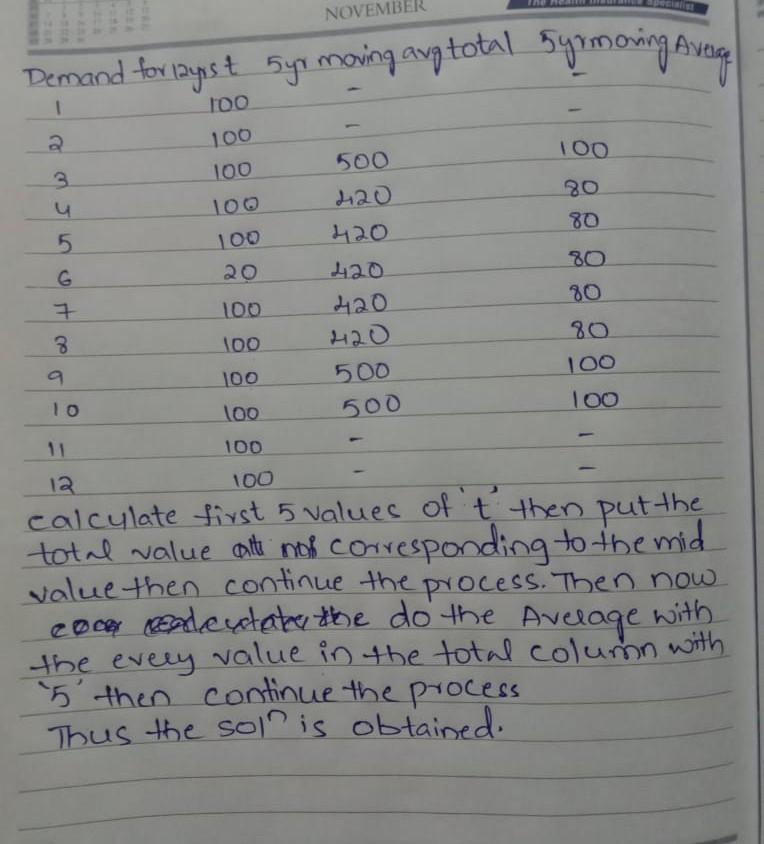 NOVEMBER
The Health Insurance Specialist
Demand for 12yrs t 5yr moving avg total 5yr moving Average
1 100 - -
2 100 - -
3 100 500 100
4 100 420 80
5 100 420 80
6 20 420 80
7 100 420 80
8 100 420 80
9 100 500 100
10 100 500 100
11 100 - -
12 100 - -
calculate first 5 values of 't' then put the
total value corresponding to the mid
value then continue the process. Then now
the do the Average with
the every value in the total column with
'5' then continue the process
Thus the solⁿ is obtained.